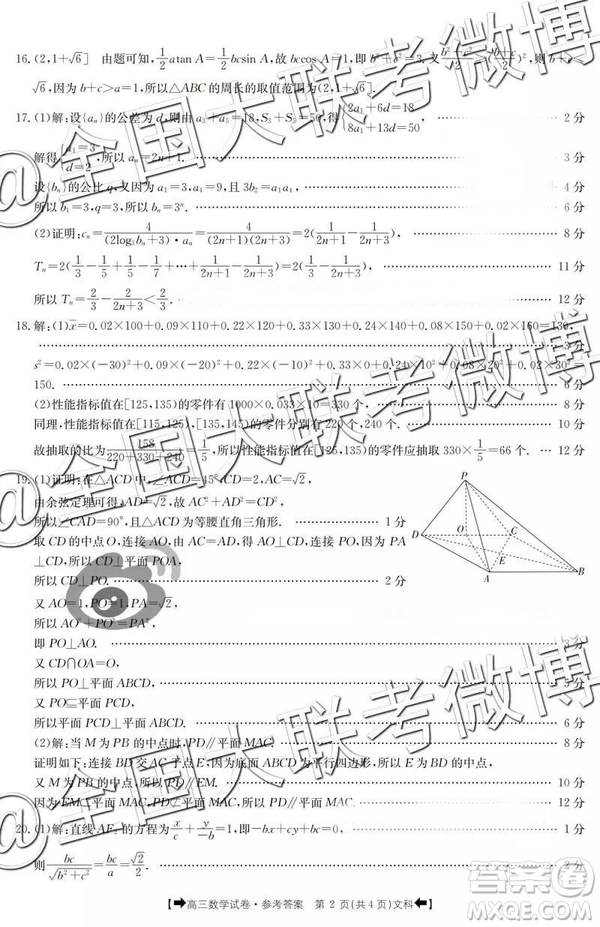 16. (2,1+√6] 由题可知, 1/2 a tan A = 1/2 bc sin A, 故 bc cos A = 1, 即 b²+c²
√6, 因为 b+c>a=1, 所以△ABC 的周长的取值范围为(2,1+√6].
17. (1)解:设{aₙ}的公差为 d, 则由 a₃+a₅=18, S₃+S₅=50, 得 {2a₁+6d=18, 8a₁+13d=50, 2 分
解得 {a₁=3, d=2, 所以 aₙ=2n+1. 3 分
设{bₙ}的公比 q, 又 a₁=3, a₄=9, 且 3b₂=a₃a₁, 4 分
所以 b₁=3, q=3, 所以 bₙ=3ⁿ. 6 分
(2)证明: cₙ = 4/((2log₃bₙ+3)·aₙ) = 4/((2n+1)(2n+3)) = 2(1/(2n+1) − 1/(2n+3)), 8 分
Tₙ=2(1/3 − 1/5 + 1/5 − 1/7 + ⋯ + 1/(2n+1) − 1/(2n+3)), 11 分
所以 Tₙ = 2/3 − 2/(2n+3) < 2/3. 12 分
18. 解:(1) x̄=0.02×100+0.09×110+0.22×120+0.33×130+0.24×140+0.08×150+0.02×160=130,
3 分
s²=0.02×(−30)²+0.09×(−20)²+0.22×(−10)²+0.33×0+0.24×10²+0.08×20²+0.02×
150. 6 分
(2)性能指标值在[125,135)的零件有 1000×0.033×10=330 个. 8 分
同理,性能指标值在[115,125),[135,145)的零件分别有 220 个,240 个. 10 分
故抽取的比为 158/(220+330+240) = 1/5, 所以性能指标值在[125,135)的零件应抽取 330×1/5=66 个. 12 分
19. (1)证明:在△ACD 中,∠ACD=45°,CD=2,AC=√2,
由余弦定理可得AD=√2, 故 AC²+AD²=CD²,
所以∠CAD=90°,且△ACD 为等腰直角三角形. 1 分
取 CD 的中点 O,连接 AO,由 AC=AD,得 AO⊥CD,连接 PO,因为 PA
⊥CD,所以 CD⊥平面 POA,
所以 CD⊥PO. 2 分
又 AO=1,PO=1,PA=√2,
所以 AO²+PO²=PA².
即 PO⊥AO. 3 分
又 CD∩OA=O,
所以 PO⊥平面 ABCD. 5 分
又 PO⊆平面 PCD,
所以平面 PCD⊥平面 ABCD. 6 分
(2)解:当 M 为 PB 的中点时,PD∥平面 MAC. 8 分
证明如下:连接 BD 交 AC 于点 E,因为底面 ABCD 为平行四边形,所以 E 为 BD 的中点.
又 M 为 PB 的中点,所以 PD∥EM. 10 分
因为 EM⊂平面 MAC,PD⊄平面 MAC,所以 PD∥平面 MAC. 12 分
P
D
O
C
E
A
B
20. (1)解:直线 AF₂ 的方程为 x/c + y/−b = 1, 即 −bx+cy+bc=0, 1 分
则 bc/√(b²+c²) = bc/a = √2/2. 2 分
高三数学试卷·参考答案 第 2 页(共 4 页)文科
@全国大联考微博
@全国大联考微博
@全国大联考微博
答案圈
MXQE.COM